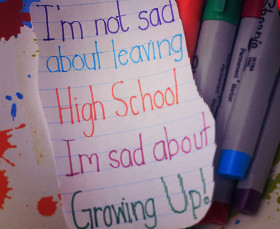 I'm not sad
about leaving
High School
Im sad about
Growing Up!